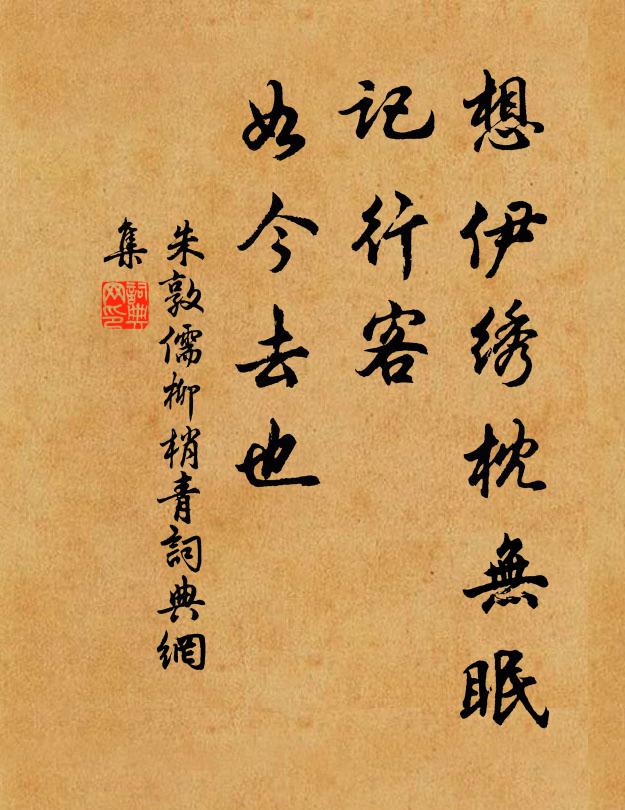 想伊绣枕無眠
記行客
如今去也
朱敦儒柳梢青詞典網
集
詞典网印